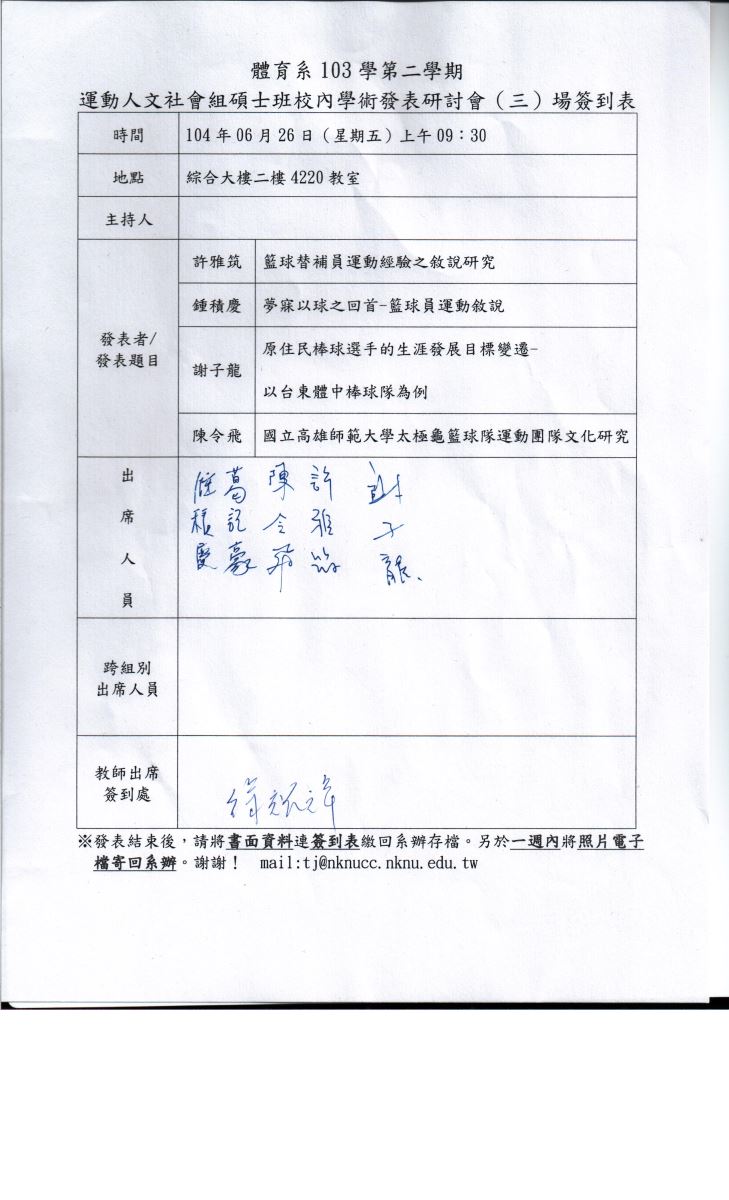 體育系 103 學第二學期
運動人文社會組碩士班校內學術發表研討會（三）場簽到表
時間 104 年 06 月 26 日（星期五）上午 09：30
地點 綜合大樓二樓 4220 教室
主持人
發表者/
發表題目
許雅筑 籃球替補員運動經驗之敘說研究
鍾積慶 夢寐以球之回首-籃球員運動敘說
謝子龍 原住民棒球選手的生涯發展目標變遷-
以台東體中棒球隊為例
陳令飛 國立高雄師範大學太極龜籃球隊運動團隊文化研究
出席人員
鍾積慶
葛記豪
陳令飛
許雅筑
謝子龍
跨組別
出席人員
教師出席
簽到處
※發表結束後，請將書面資料連簽到表繳回系辦存檔。另於一週內將照片電子
檔寄回系辦。謝謝！ mail:tj@nknucc.nknu.edu.tw